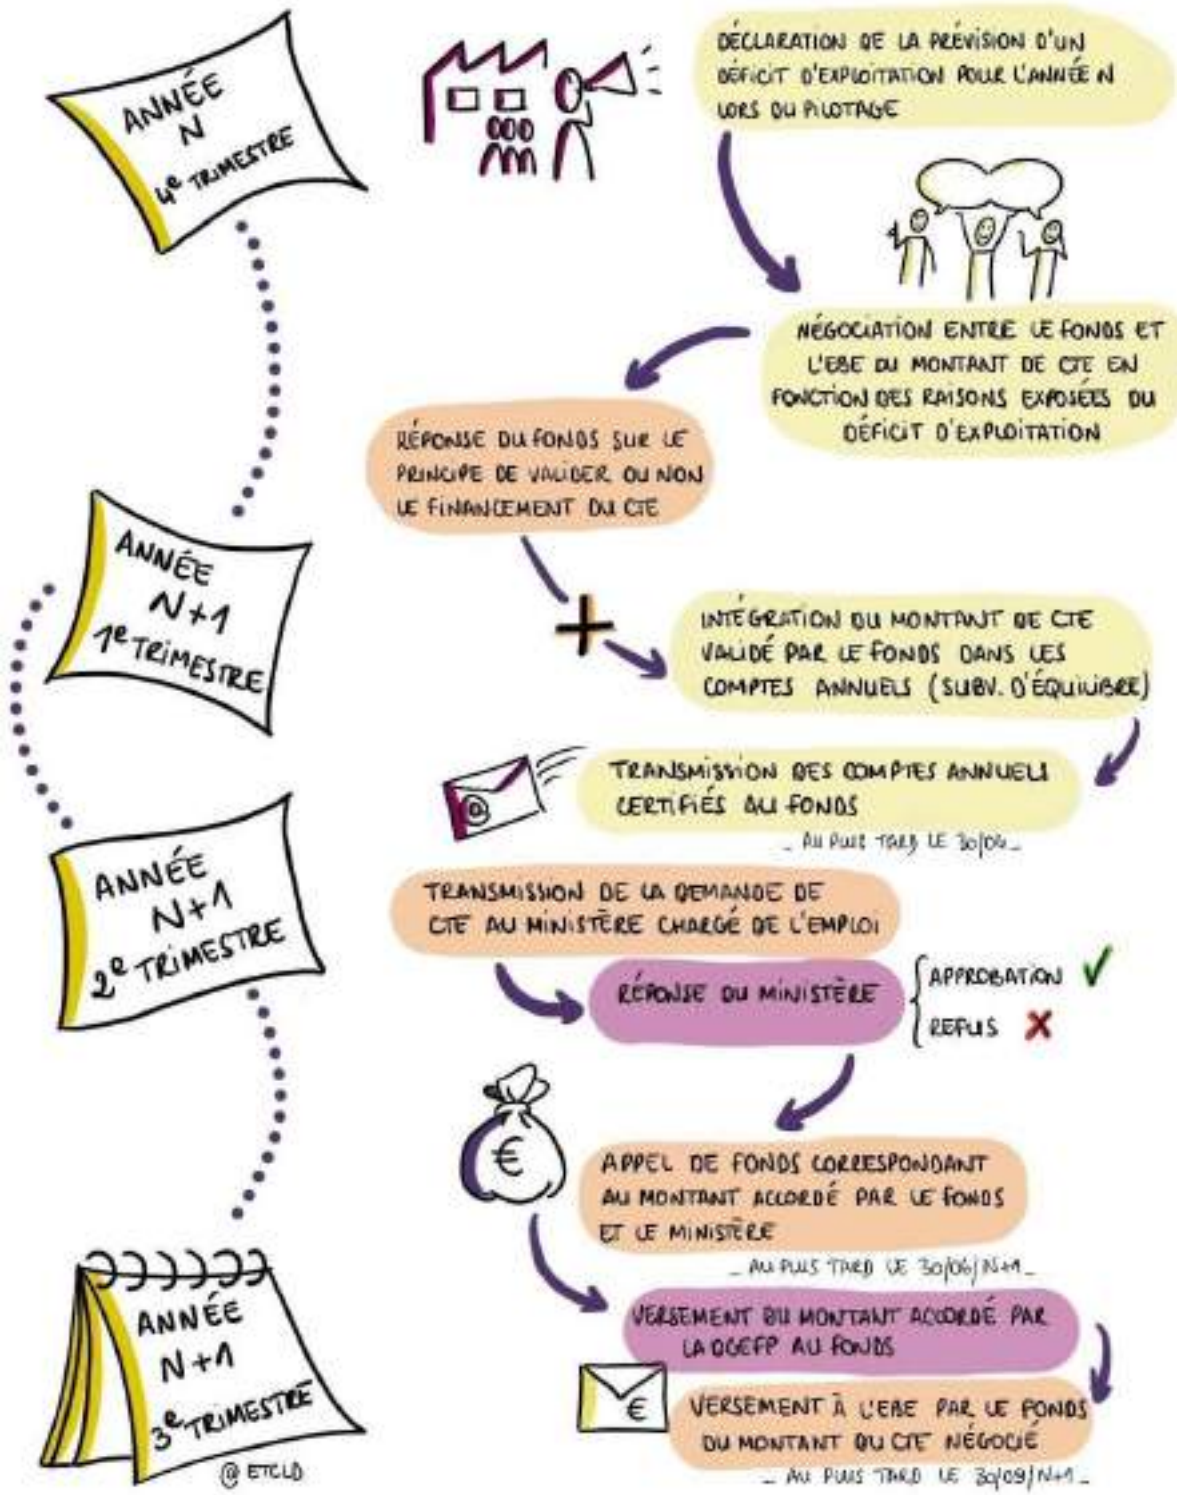 ANNÉE
N
4e TRIMESTRE
DÉCLARATION DE LA PRÉVISION D'UN
DÉFICIT D'EXPLOITATION POUR L'ANNÉE N
LORS DU PILOTAGE
NÉGOCIATION ENTRE LE FONDS ET
L'EBE DU MONTANT DE CTE EN
FONCTION DES RAISONS EXPOSÉES DU
DÉFICIT D'EXPLOITATION
RÉPONSE DU FONDS SUR LE
PRINCIPE DE VALIDER OU NON
LE FINANCEMENT DU CTE
ANNÉE
N+1
1e TRIMESTRE
INTÉGRATION DU MONTANT DE CTE
VALIDÉ PAR LE FONDS DANS LES
COMPTES ANNUELS (SUBV. D'ÉQUILIBRE)
@
TRANSMISSION DES COMPTES ANNUELS
CERTIFIÉS AU FONDS
_ AU PLUS TARD LE 30/04_
ANNÉE
N+1
2e TRIMESTRE
TRANSMISSION DE LA DEMANDE DE
CTE AU MINISTÈRE CHARGÉ DE L'EMPLOI
RÉPONSE DU MINISTÈRE
APPROBATION
REFUS
€
APPEL DE FONDS CORRESPONDANT
AU MONTANT ACCORDÉ PAR LE FONDS
ET LE MINISTÈRE
_ AU PLUS TARD LE 30/06/N+1_
ANNÉE
N+1
3e TRIMESTRE
@ ETCLD
VERSEMENT DU MONTANT ACCORDÉ PAR
LA DGEFP AU FONDS
€
VERSEMENT À L'EBE PAR LE FONDS
DU MONTANT DU CTE NÉGOCIÉ
_ AU PLUS TARD LE 30/09/N+1_